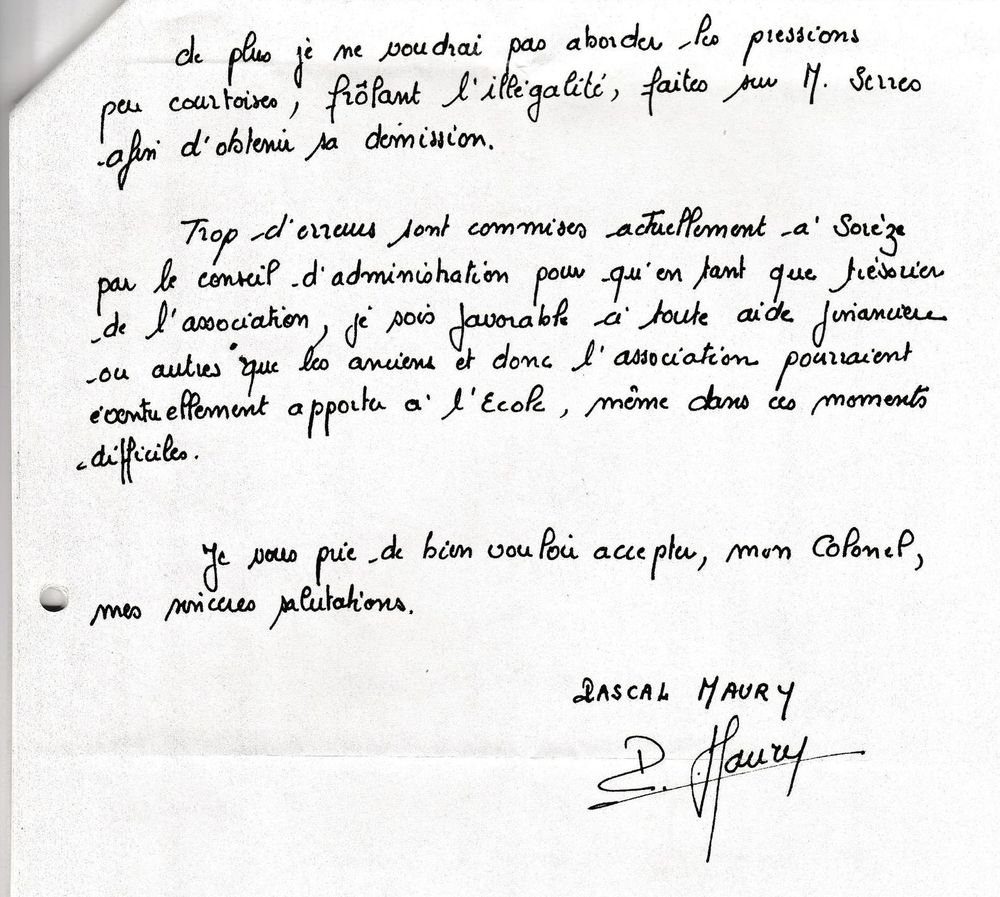 de plus je ne voudrai pas aborder les pressions
peu courtoises, frôlant l'illégalité, faites sur M. Serres
afin d'obtenir sa démission.
Trop d'erreurs sont commises actuellement à Sorèze
par le conseil d'administration pour qu'en tant que trésorier
de l'association, je sois favorable à toute aide financière
ou autres que les anciens et donc l'association pourraient
éventuellement apporter à l'Ecole, même dans ces moments
difficiles.
Je vous prie de bien vouloir accepter, mon Colonel,
mes sincères salutations.
PASCAL MAURY
P. Maury